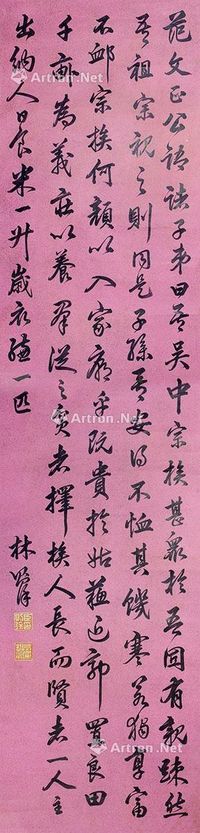 范文正公語諸子弟曰吾吳中宗族甚衆於吾固有親疎然
吾祖宗視之則同是子孫吾安得不恤其饑寒若獨享富
不卹宗族何顏以入家廟乎既貴於姑蘇近郭買良田
千畝為義莊以養羣從之貧者擇族人長而賢者一人主
出納人日食米一升歲衣縑一匹
林
Artron.Net